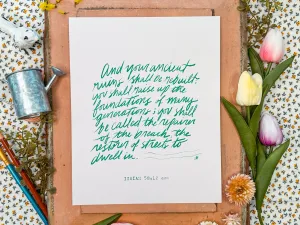 And your ancient
ruins shall be rebuilt
you shall raise up the
foundations of many
generations; you shall
be called the repairer
of the breach, the
restorer of streets to
dwell in.
ISAIAH 58:12